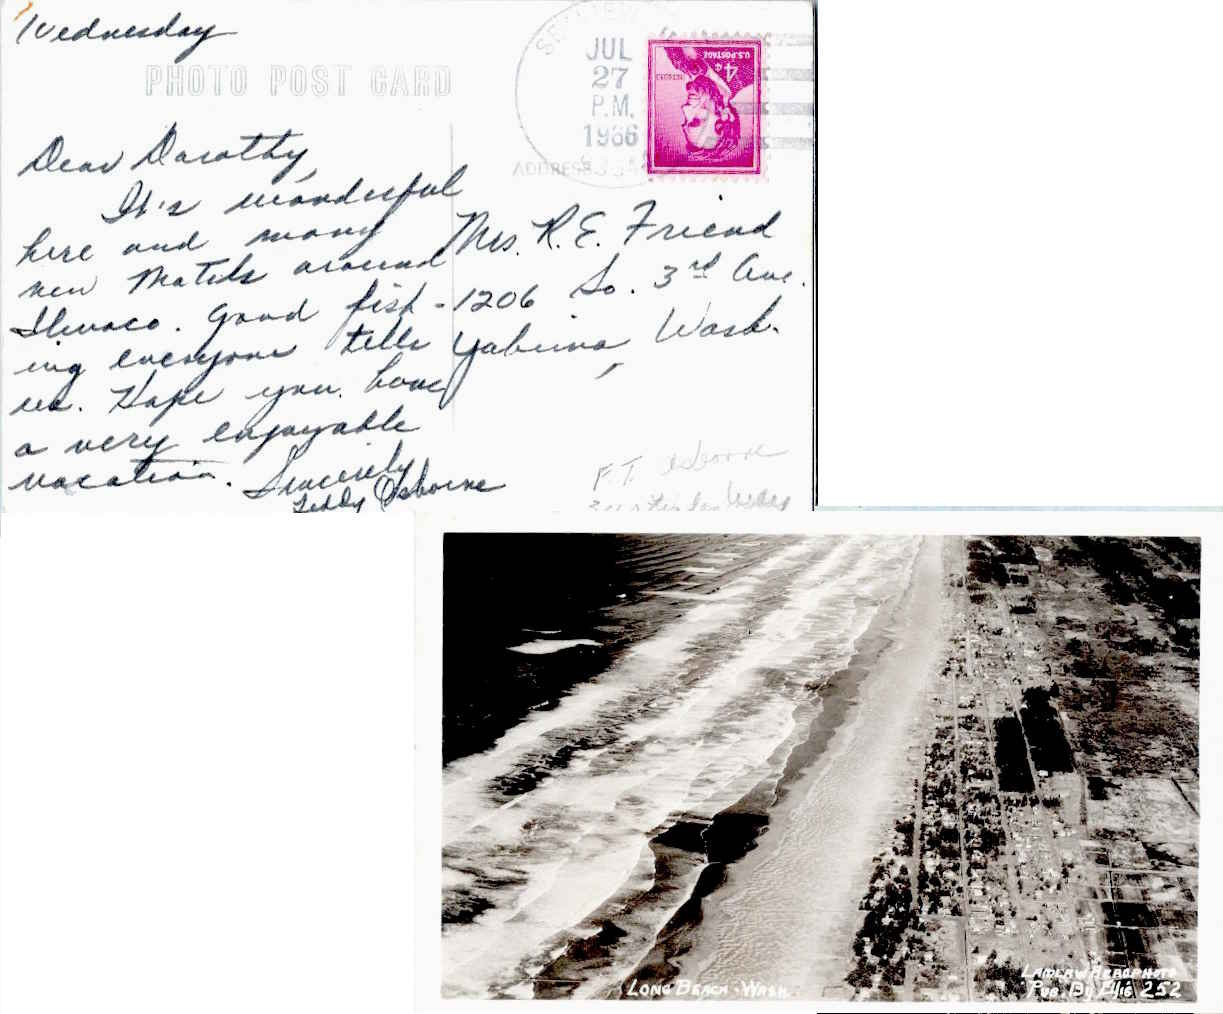 Wednesday
PHOTO POST CARD
JUL
27
P.M.
1966
ADDRESS
U.S. POSTAGE
4¢
Dear Dorothy,
It's wonderful
here and many
new Motels around
Ilwaco. Good fish-
ing everyone tells
us. Hope you have
a very enjoyable
vacation. Sincerely
Teddy Osborne
Mrs. R. E. Friend
1206 So. 3rd Ave.
Yakima, Wash.
F. T. Osborne
LONG BEACH - WASH.
LAIDLAW AEROPHOTO
PUB. BY ELLIS 252